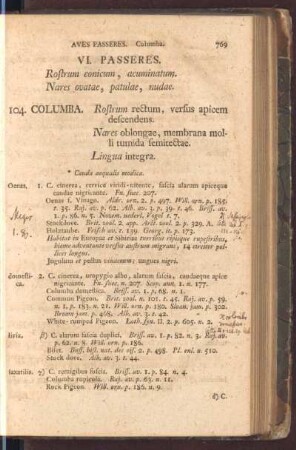 AVES PASSERES. Columba. 769
VI. PASSERES.
Rostrum conicum, acuminatum.
Nares ovatae, patulae, nudae.
104. COLUMBA. Rostrum rectum, versus apicem
descendens.
Nares oblongae, membrana mol-
li tumida semitectae.
Lingua integra.
* Cauda aequalis modica.
Oenas. 1. C. cinerea, cervice viridi-nitente, fascia alarum apiceque
caudae nigricante. Fn. suec. 207.
Oenas s. Vinago. Aldr. orn. 2. p. 497. Will. orn. p. 185.
t. 35. Raj. av. p. 62. Alb. av. 2. p. 46. Briss. av.
1. p. 86. n. 5.
Stockdove. Brit. zool. 2. app. Arct. zool. 2. p. 329. A.
Holztaube. Frisch av. t. 139. Georg. it. p. 173.
Habitat in Europae et Sibiriae rupestribus,
hieme adventante versus austrum migrans, 14 circiter pol-
lices longus.
Jugulum et pectus vinaceum; ungues nigri.
domesti-
ca. 2. C. cinerea, uropygio albo, alarum fascia, caudaeque apice
nigricante. Fn. suec. n. 207. Scop. ann. 1. n. 177.
Columba domestica. Briss. av. 1. p. 68. n. 1.
Common Pigeon. Brit. zool. n. 101. t. 45. Raj. av. p. 59.
n. 1. p. 183. n. 21. Will. orn. p. 180. Sloan. jam. p. 302.
Brown jam. p. 468. Alb. av. 3. t. 42.
White-rumped Pigeon. Lath. syn. II. 2. p. 605. n. 2.
livia. β) C. alarum fascia duplici. Briss. av. 1. p. 82. n. 3. Raj. av.
p. 62. n. 8. Will. orn. p. 186.
Biset. Buff. hist. nat. des ois. 2. p. 498. Pl. enl. n. 510.
Stock dove. Alb. av. 3. t. 44.
saxatilis. γ) C. remigibus fuscis. Briss. av. 1. p. 84. n. 4.
Columba rupicola. Raj. av. p. 63. n. 11.
Rock Pigeon. Will. orn. p. 186. n. 9.
δ) C.